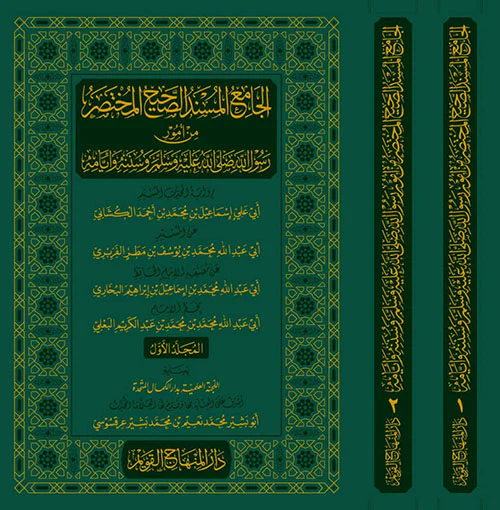 الجامع المسند الصحيح المختصر
من أمور
رسول الله صلى الله عليه وسلم وسننه وأيامه
أبي علي إسماعيل بن محمد بن أحمد الكشاني
عن
أبي عبد الله محمد بن يوسف بن مطر الفربري
عن
أبي عبد الله محمد بن إسماعيل بن إبراهيم البخاري
بخط الإمام
أبي عبد الله محمد بن محمد بن عبد الكريم البعلي
المجلد الأول
اللجنة العلمية بدار الكمال المتحدة
أبو بشير محمد نعيم بن محمد بشير عرقسوسي
دار المنهاج القويم
الجامع المسند الصحيح المختصر من أمور رسول الله صلى الله عليه وسلم وسننه وأيامه
٢
دار المنهاج القويم
الجامع المسند الصحيح المختصر من أمور رسول الله صلى الله عليه وسلم وسننه وأيامه
١
دار المنهاج القويم